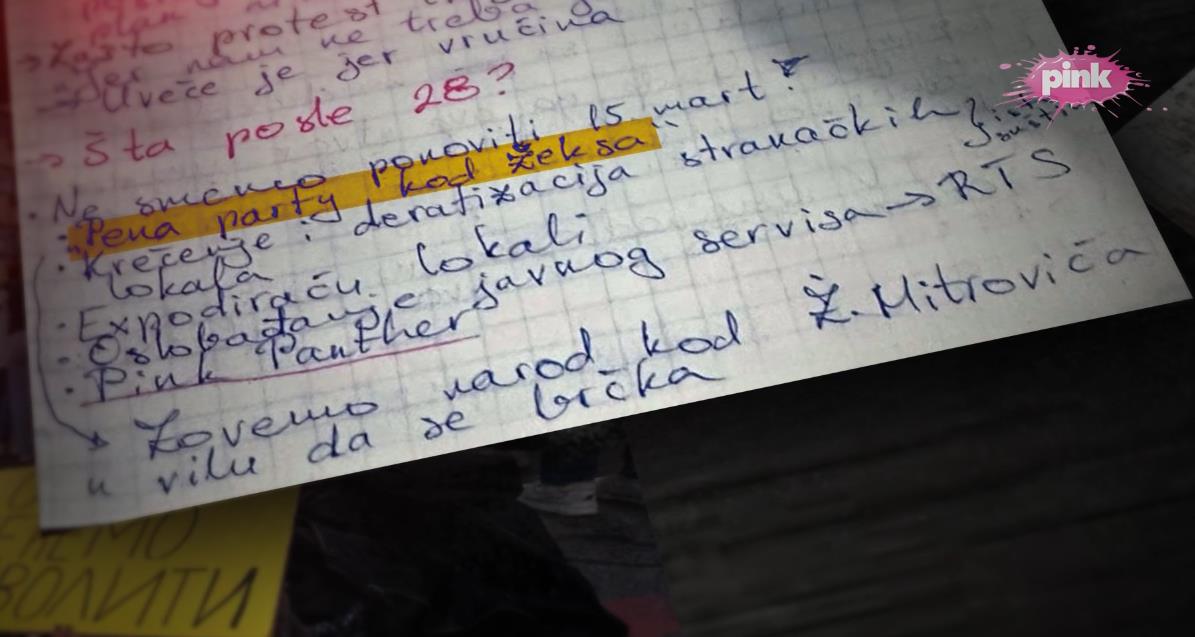 plan
→ Zašto protest
Jer nam ne treba
→ Uveče je jer vrućina
→ Šta posle 28?
· Ne smemo ponoviti 15. mart!
· "Pena party kod Žeksa"
· Krečenje i deratizacija stranačkih
lokala
· Expodiraču lokali
· Oslobađanje javnog servisa → RTS
· Pink Panther
Zovemo narod kod Ž. Mitrovića
u vilu da se brčka
pink
ВОЛИТИ